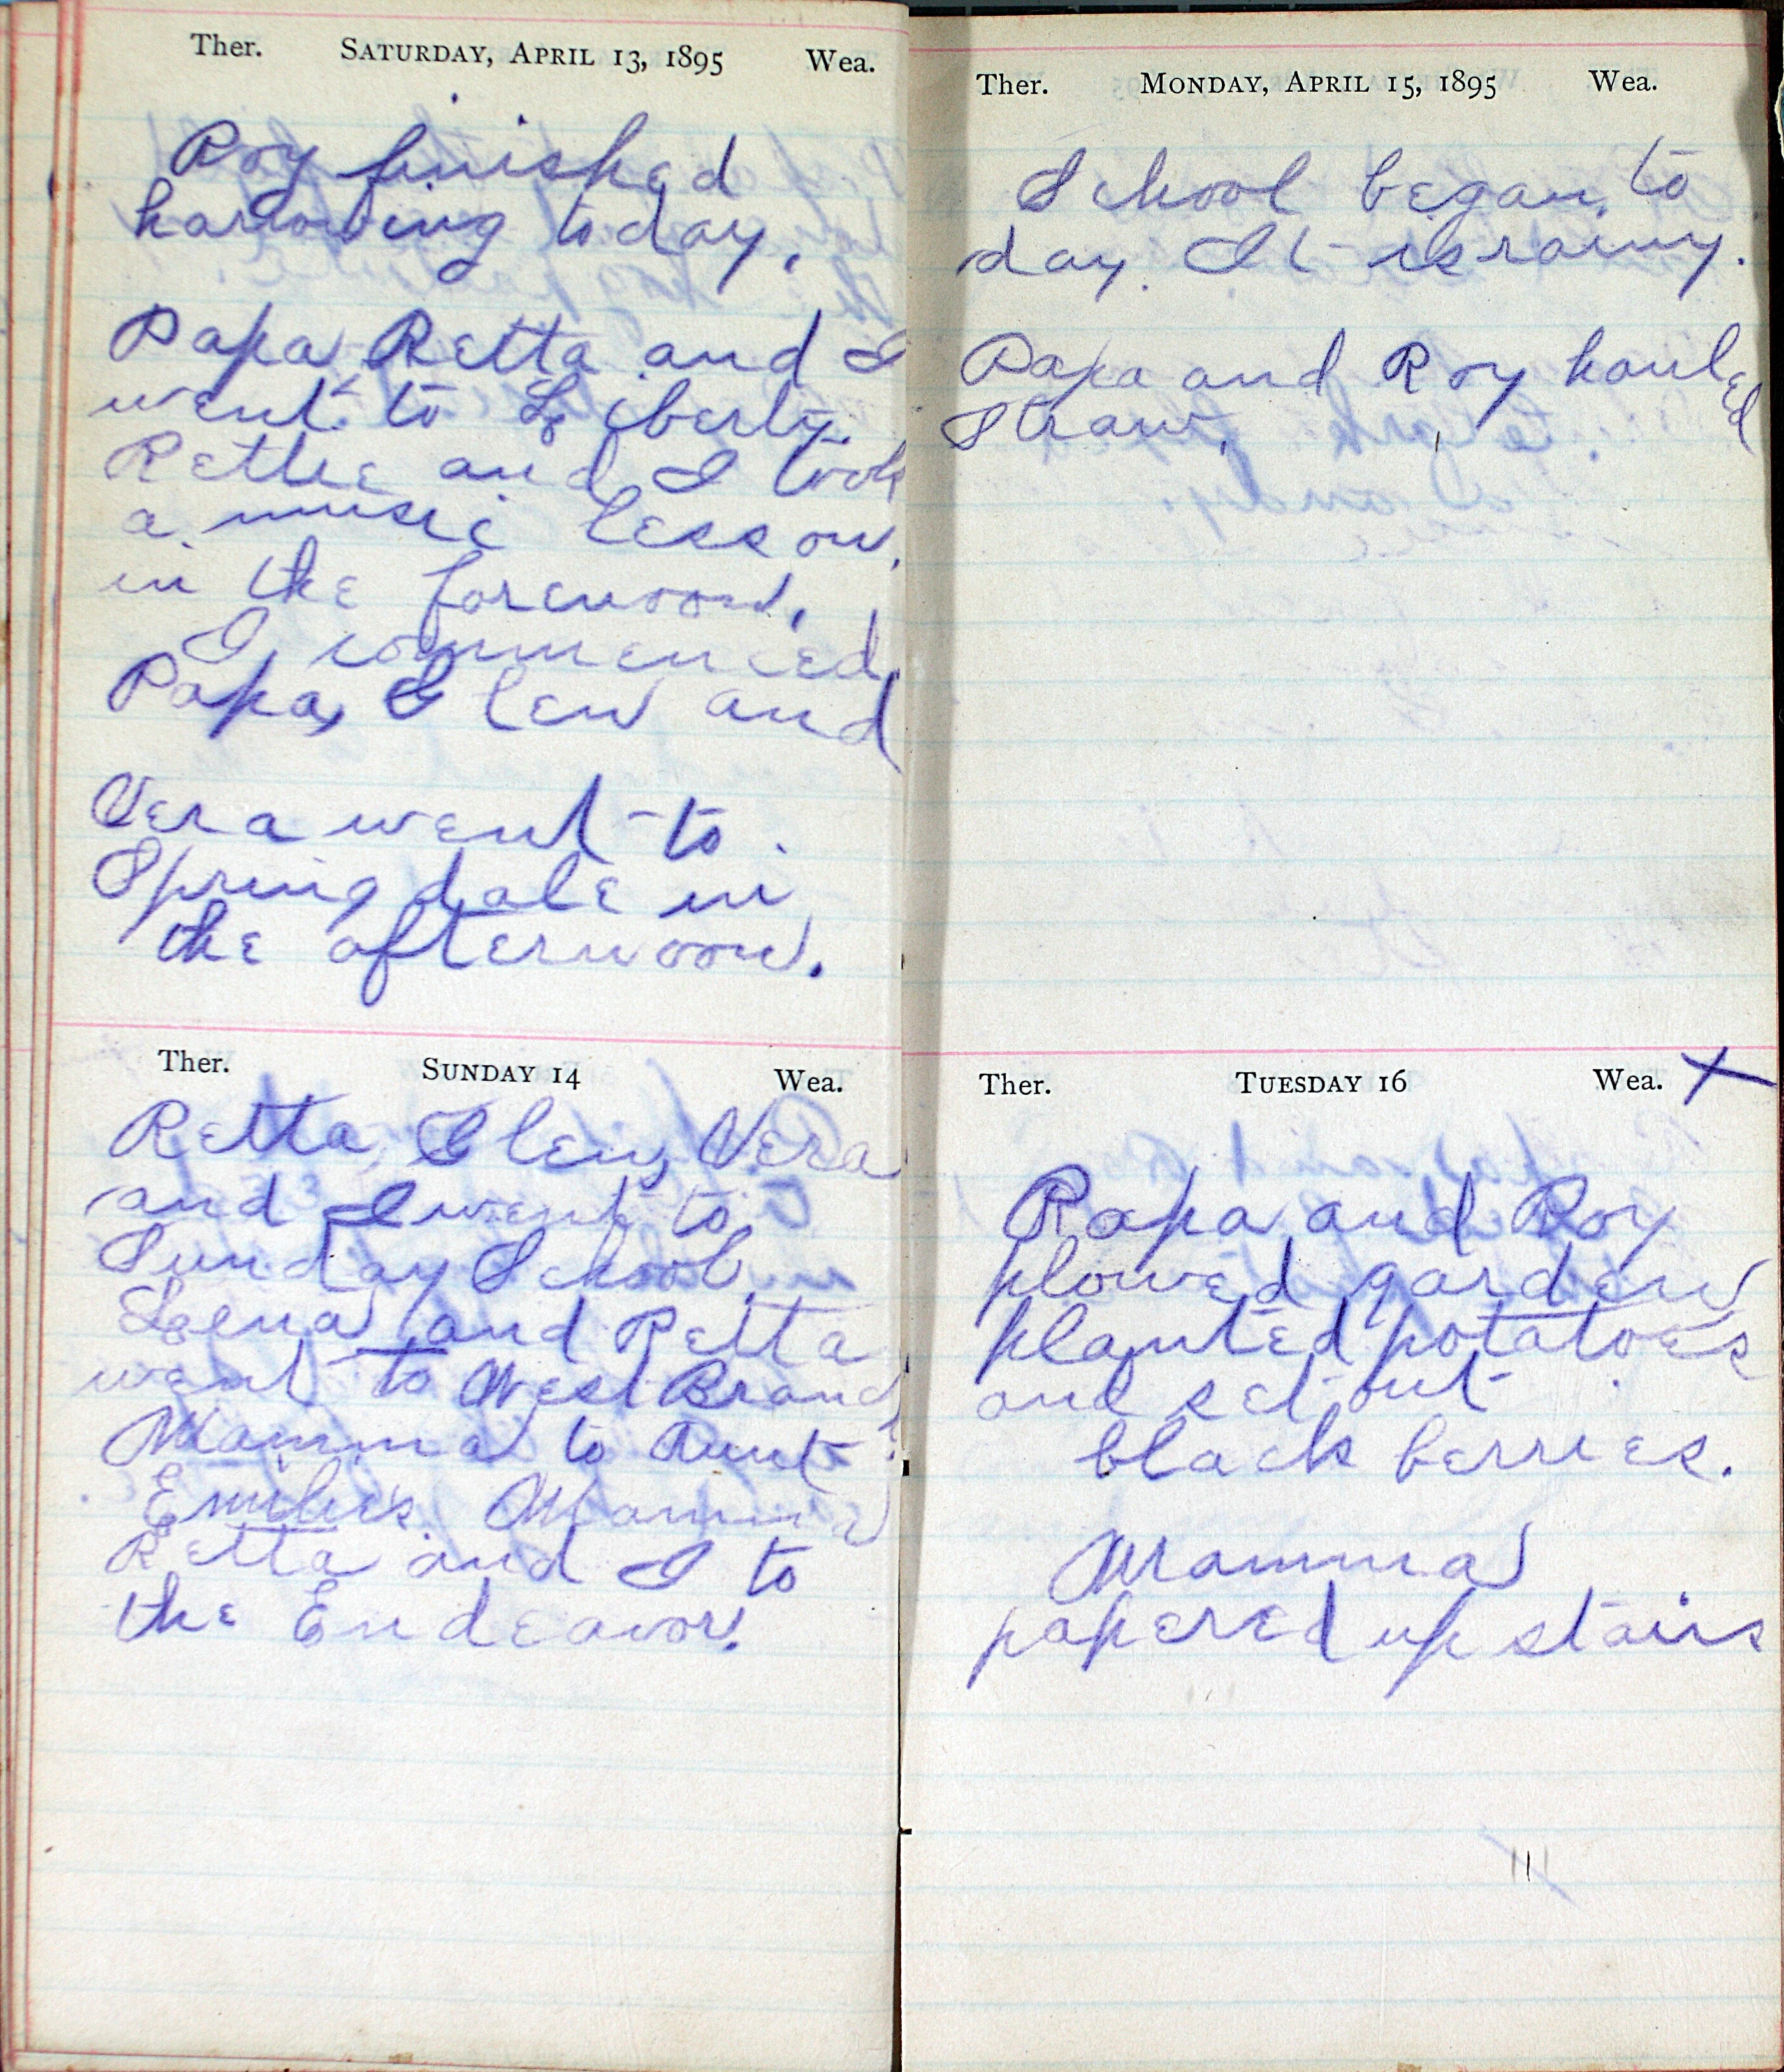 Ther. SATURDAY, APRIL 13, 1895 Wea.
Roy finished
harrowing today.
Papa Retta and I
went to Liberty.
Rettie and I took
a music lesson
in the forenoon.
I commenced
Papa, Glen and
Vera went to
Springdale in
the afternoon.
Ther. SUNDAY 14 Wea.
Retta, Glen, Vera
and I went to
Sunday School.
Leena and Retta
went to West Branch.
Mamma to Aunt
Emilie's. Mamma
Retta and I to
the Endeavor.
Ther. MONDAY, APRIL 15, 1895 Wea.
School began to
day. It is rainy.
Papa and Roy hauled
straw.
Ther. TUESDAY 16 Wea. X
Papa and Roy
plowed garden
planted potatoes
and set out
black berries.
Mamma
papered up stairs